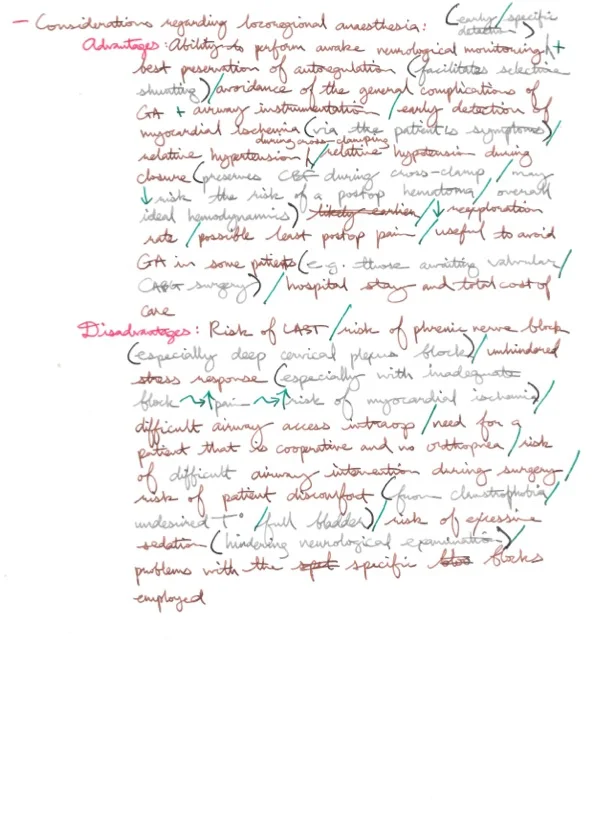 – Considerations regarding locoregional anaesthesia: (early/specific
detection)
Advantages: Ability to perform awake neurological monitoring/+
best preservation of autoregulation (facilitates selective
shunting)/avoidance of the general complications of
GA + airway instrumentation /early detection of
myocardial ischemia (via the patient's symptoms)/
during cross-clamping
relative hypertension /relative hypotension during
closure (preserves CBF during cross-clamp/may
↓risk the risk of a postop hematoma/overall
ideal hemodynamics) likely earlier/↓reexploration
rate /possible least postop pain/useful to avoid
GA in some patients(e.g. those awaiting valvular/
CABG surgery)/hospital stay and total cost of
care
Disadvantages: Risk of LAST/risk of phrenic nerve block
(especially deep cervical plexus block)/unhindered
stress response (especially with inadequate
block ⇝↑pain ⇝↑risk of myocardial ischemia)/
difficult airway access intraop/need for a
patient that is cooperative and no orthopnea/risk
of difficult airway intervention during surgery/
risk of patient discomfort (from claustrophobia/
undesired T° /full bladder)/risk of excessive
sedation (hindering neurological examination)/
problems with the specific blocks
employed